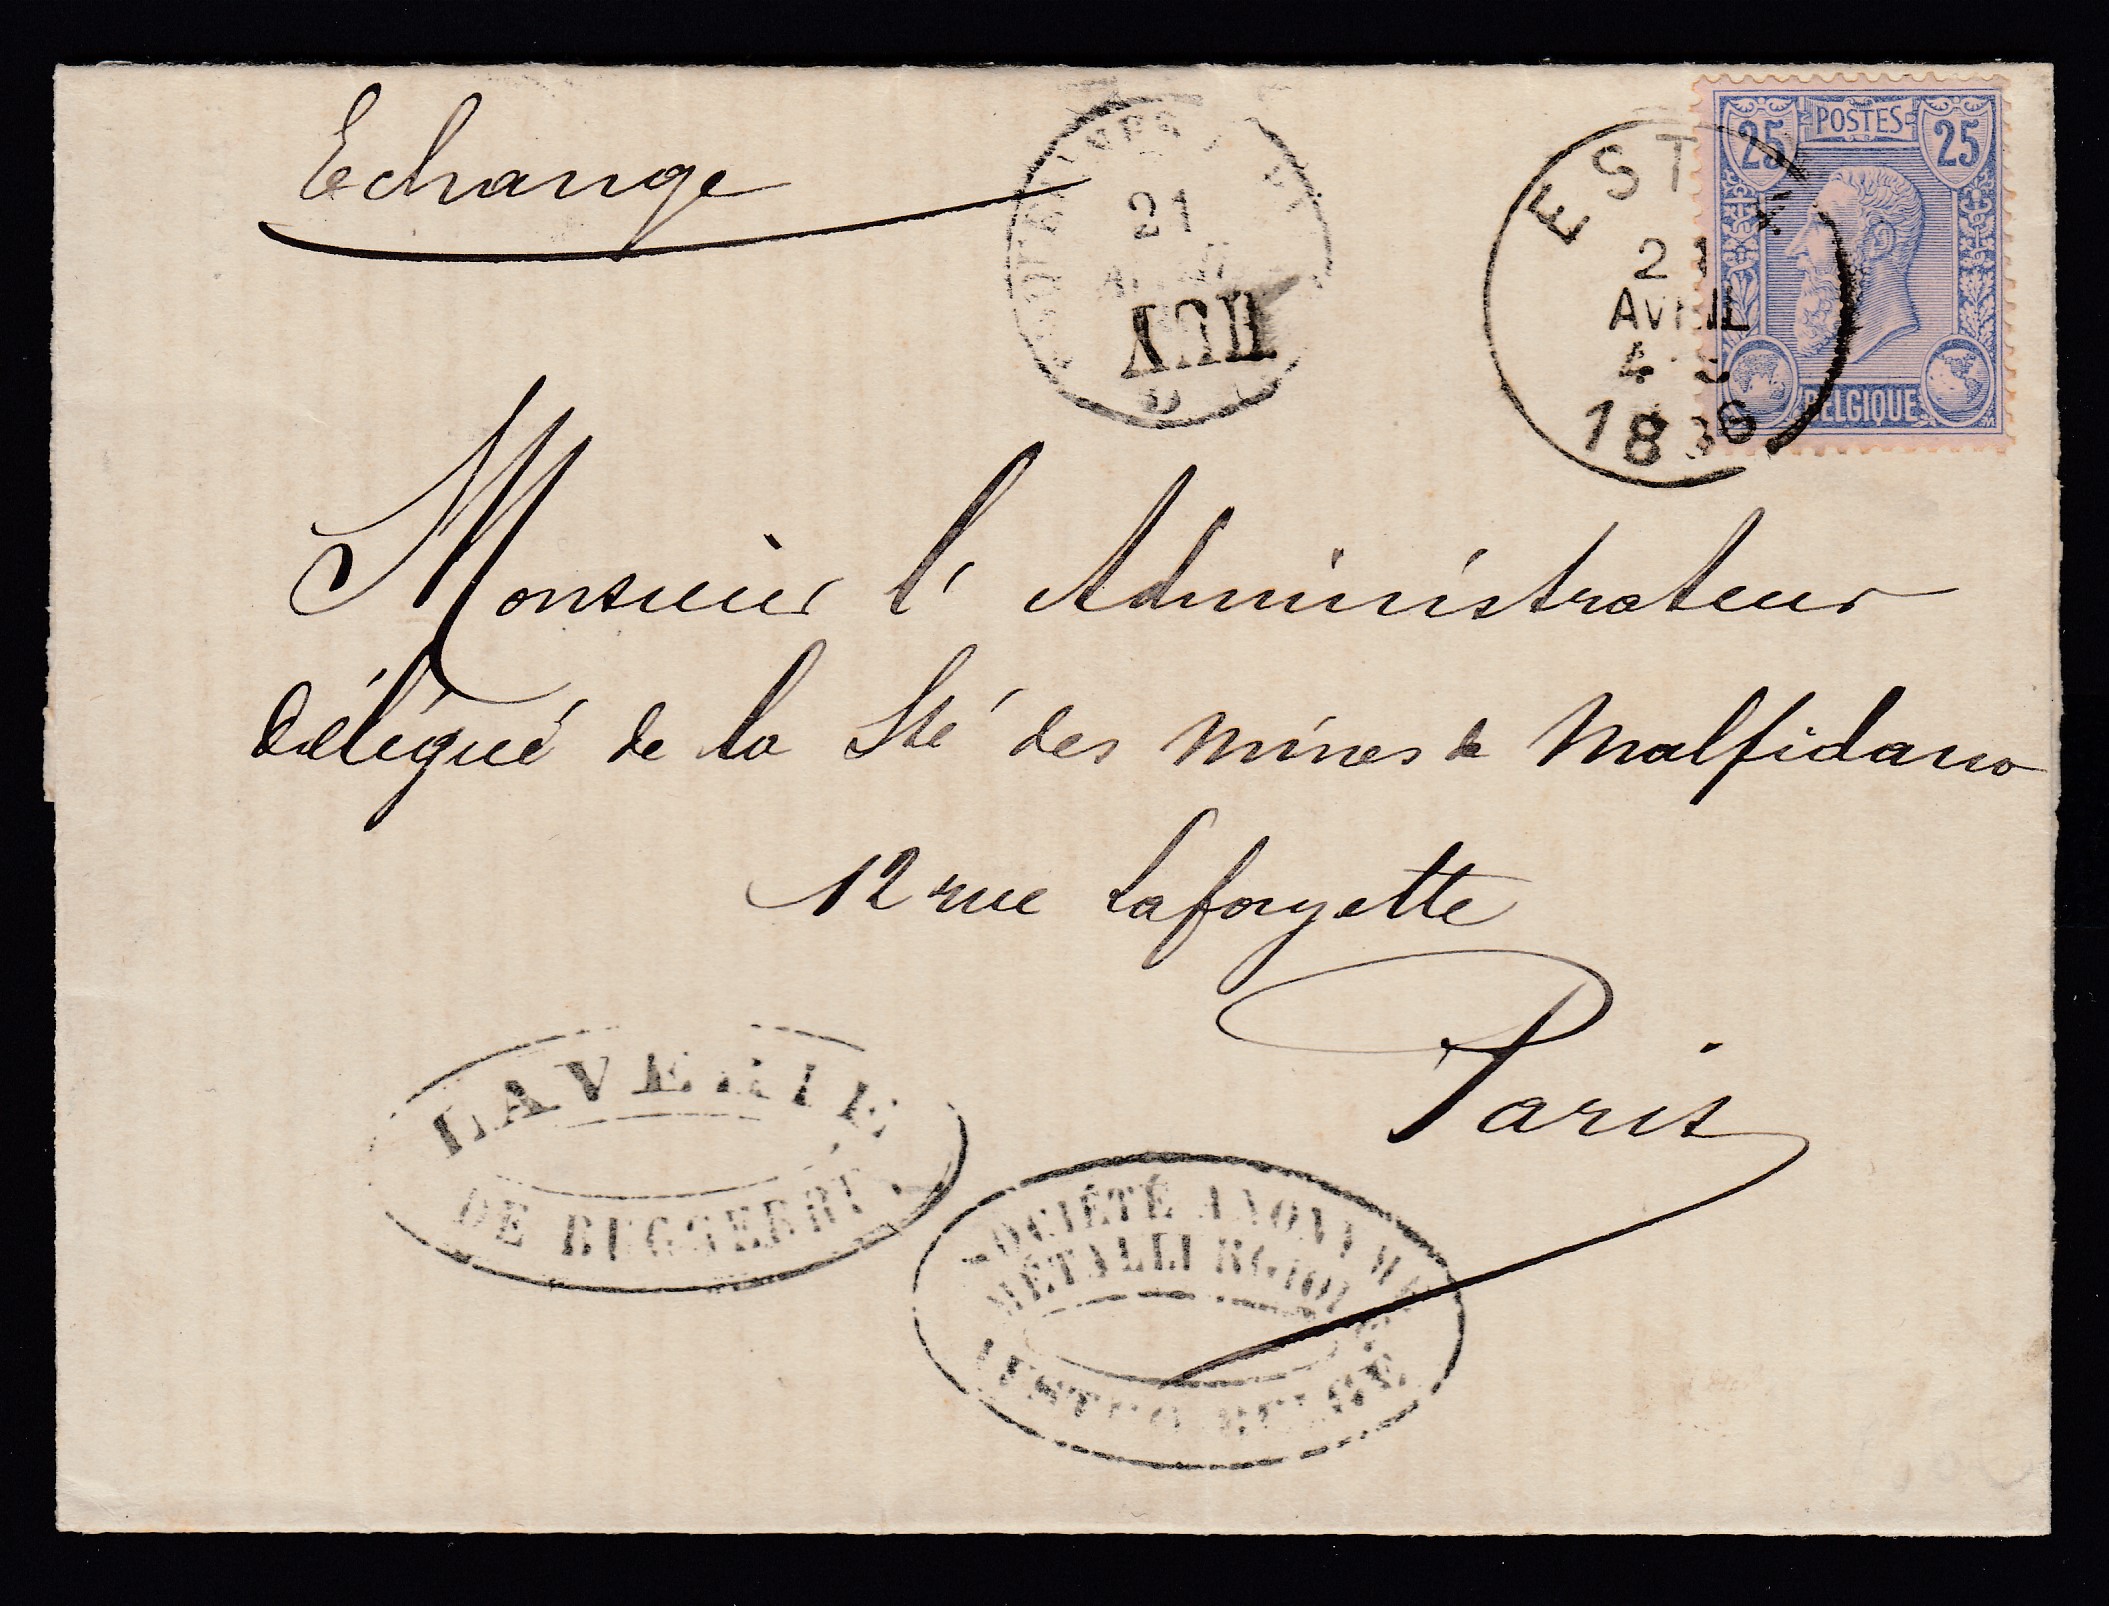 Echange
21
HUY
ESTA
21
AVRIL
4-S
1886
25 POSTES 25
BELGIQUE
Monsieur l'Administrateur
Délégué de la Sté des mines de Malfidano
12 rue Lafayette
Paris
LAVERIE
DE BUGGERRU
SOCIÉTÉ ANONYME
MÉTALLURGIQUE
AUSTRO-BELGE